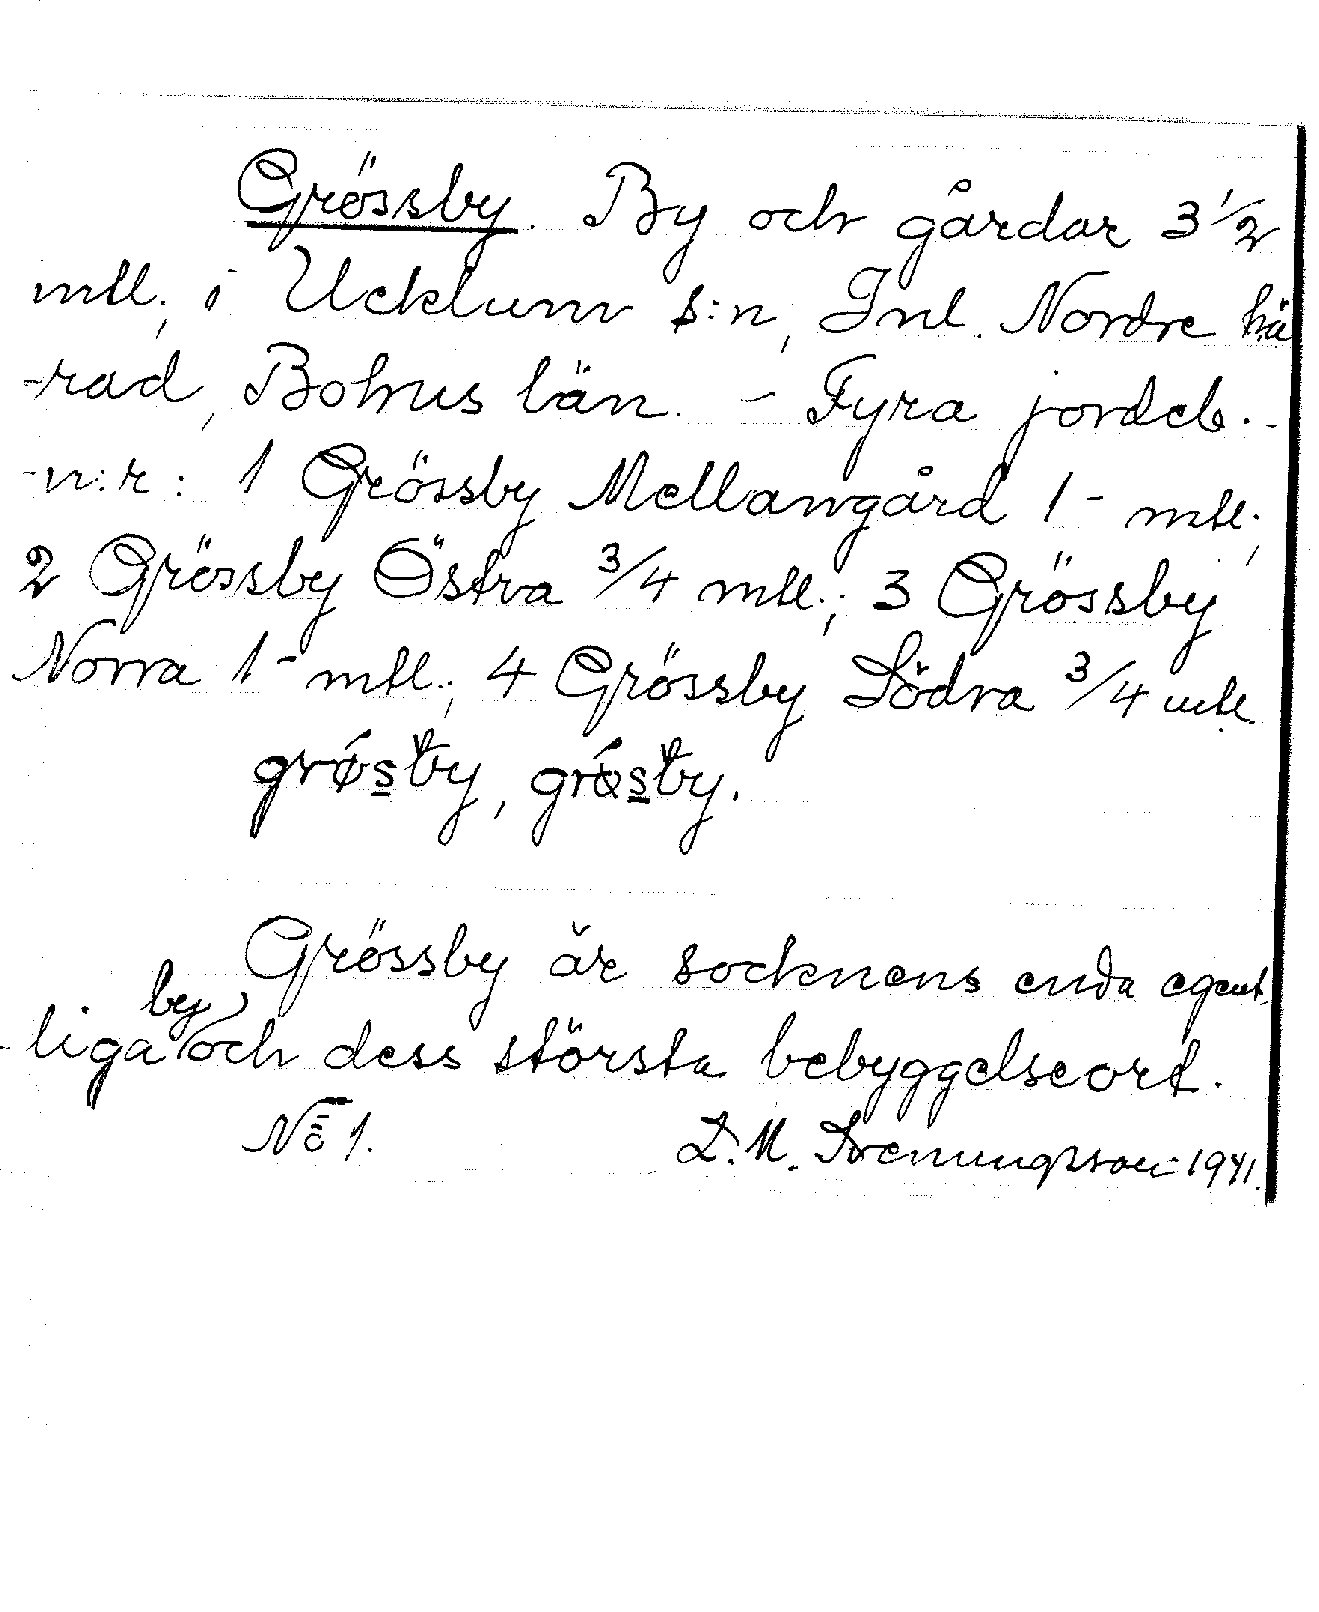 Grössby. By och gårdar 3 1/2
mtl., i Ucklum s:n, Inl. Nordre hä
-rad, Bohus län. - Fyra jordeb.-
-n:r: 1 Grössby Mellangård 1 - mtl.;
2 Grössby Östra 3/4 mtl.; 3 Grössby
Norra 1 - mtl.; 4 Grössby Södra 3/4 mtl.
grøsby, grösby.
Grössby är socknens enda egent
-liga by och dess största bebyggelseort.
No 1. 1941.